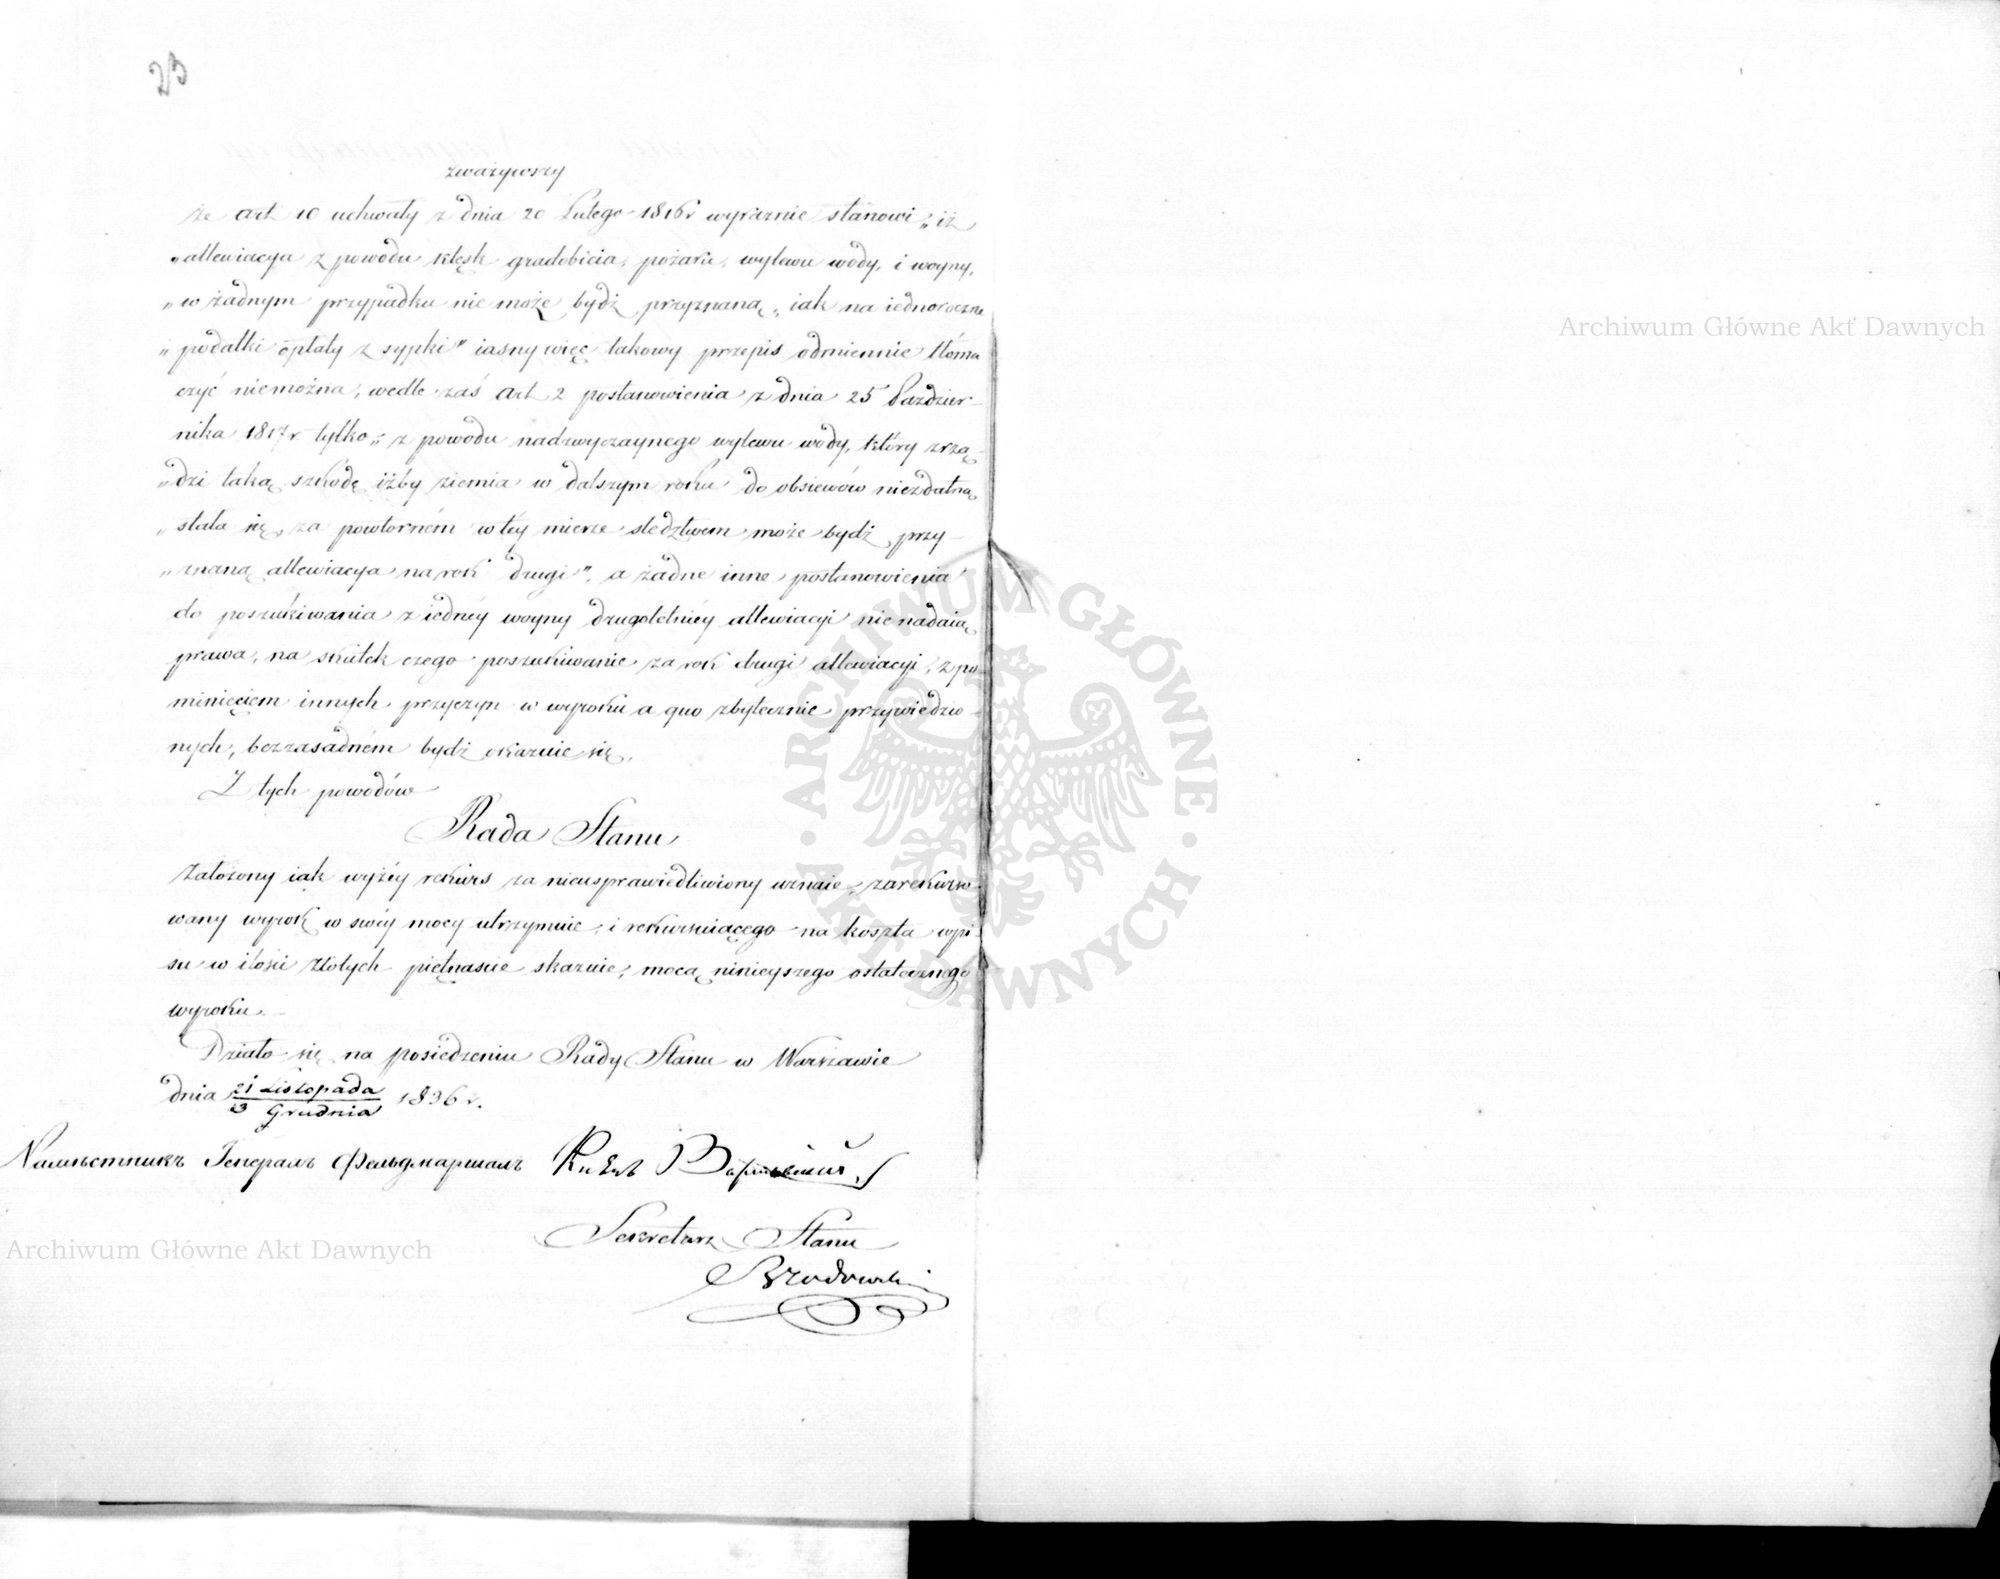 23
zważywszy
że art 10 uchwały z dnia 20 Lutego 1816 r wyraźnie stanowi „iż
„allewiacya z powodu klęsk gradobicia, pożaru, wylewu wody, i woyny,
„w żadnym przypadku nie może bydź przyznaną, iak na iednoroczne
„podatki opłaty z sypki” iasny więc takowy przepis odmiennie tłóma
czyć niemożna, wedle zaś art 2 postanowienia z dnia 25 Paździer-
nika 1817 r tylko „z powodu nadzwyczaynego wylewu wody, który zrzą-
„dzi taką szkodę iżby ziemia w dalszym roku do obsiewów niezdatną
„stała się, za powtorném w téy mierze sledztwem może bydź przy-
„znaną allewiacya na rok drugi”, a żadne inne postanowienia
do poszukiwania z iednéy woyny drugoletniéy allewiacyi nienadaią
prawa, na skutek czego poszukiwanie za rok drugi allewiacyi, z po-
minięciem innych przyczyn w wyroku a quo zbytecznie przywiedzio-
nych, bezzasadném bydź okazuie się.
Z tych powodów
Rada Stanu
Założony iak wyżéy rekurs za nieusprawiedliwiony uznaie, zarekurso-
wany wyrok w swéy mocy utrzymuie, i rekuruiącego na koszta wpi-
su w ilości złotych piętnaście skazuie, mocą ninieyszego ostatecznego
wyroku.
Działo się na posiedzeniu Rady Stanu w Warszawie
dnia 21 Listopada / 3 Grudnia 1836 r.
Намѣстникъ Генералъ Фельдмаршалъ Князь Варшавскій
Sekretarz Stanu
Brzodowski
Archiwum Główne Akt Dawnych
Archiwum Główne Akt Dawnych
· ARCHIWUM GŁÓWNE · AKT DAWNYCH